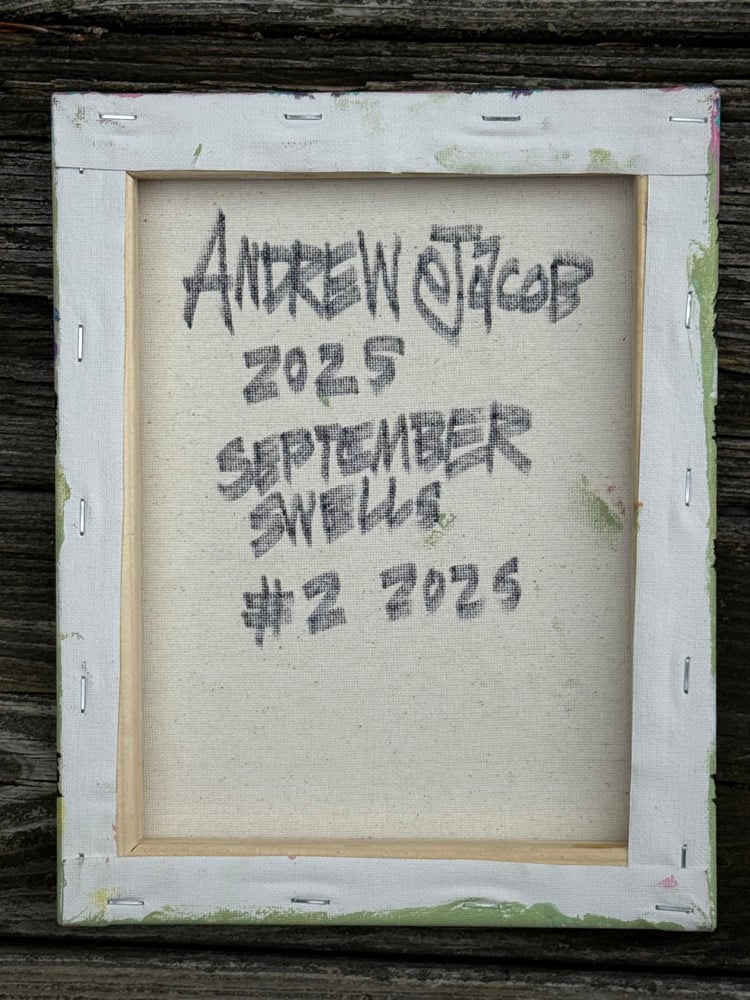 ANDREW JACOB
2025
SEPTEMBER
SWELLS
#2 2025